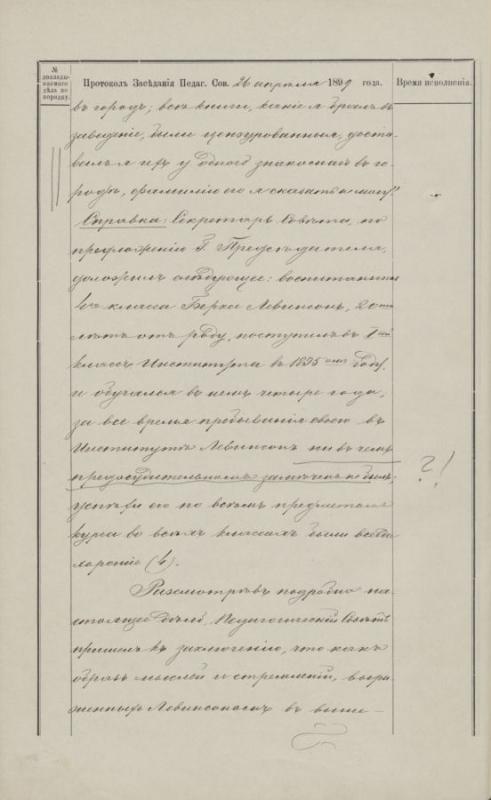 № докладываемаго дѣла по порядку.
Протоколъ Засѣданія Педаг. Сов. 26 апрѣля 1899 года.
Время исполненія.
въ городъ; всѣ книги, какія я бралъ въ
заведеніе, были цензурованныя, доста-
вилъ я ихъ у одного знакомаго въ го-
родѣ, фамилію его я сказать не могу".
Справка: Секретарь Совѣта, по
предложенію Г. Предсѣдателя,
доложилъ слѣдующее: воспитанникъ
класса Берка Левинсонъ, 20
лѣтъ отъ роду, поступилъ въ I
классъ Института въ 1895 году
и обучался въ немъ четыре года,
за все время пребыванія своего въ
Институтѣ Левинсонъ ни въ чемъ
предосудительномъ замѣченъ не былъ;
успѣхи его по всѣмъ предметамъ
курса во всѣхъ классахъ были всегда
хорошіе (4).
?!
Разсмотрѣвъ подробно на-
стоящее дѣло, Педагогическій Совѣтъ
пришелъ къ заключенію, что какъ
образъ мыслей и стремленій, выра-
женныхъ Левинсономъ въ выше-